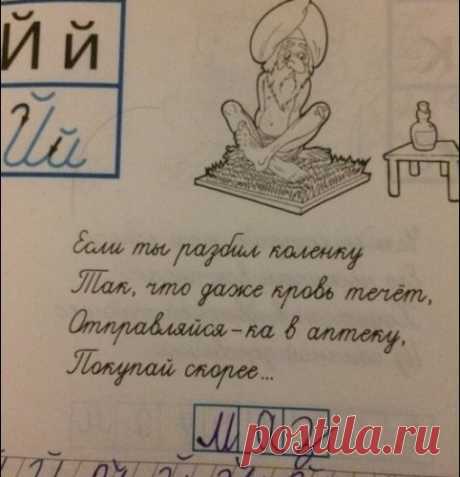 Й й
Й й
К
Если ты разбил коленку
Так, что даже кровь течёт,
Отправляйся-ка в аптеку,
Покупай скорее...
маз
postila.ru